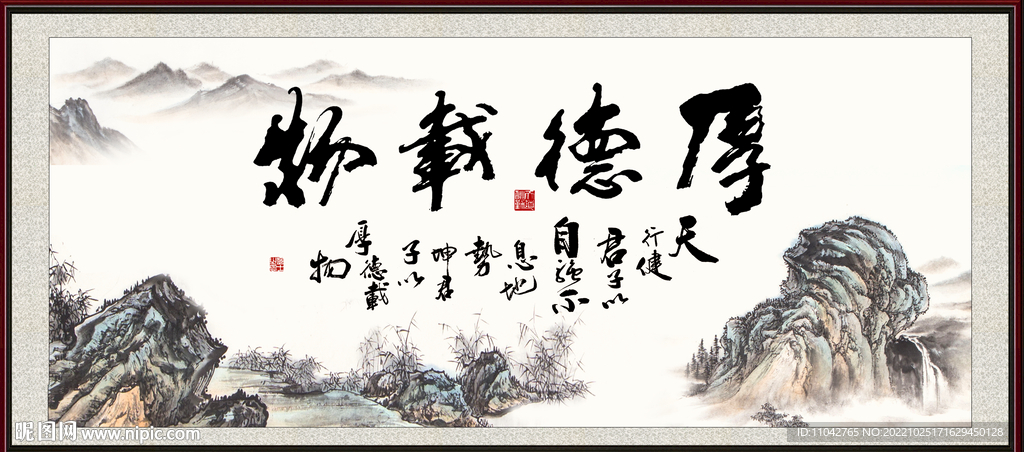 厚德載物
天
行健
君子以
自強不
息地
勢
坤君
子以
厚德載
物
昵图网 www.nipic.com
ID:11042765 NO:20221025171629450128